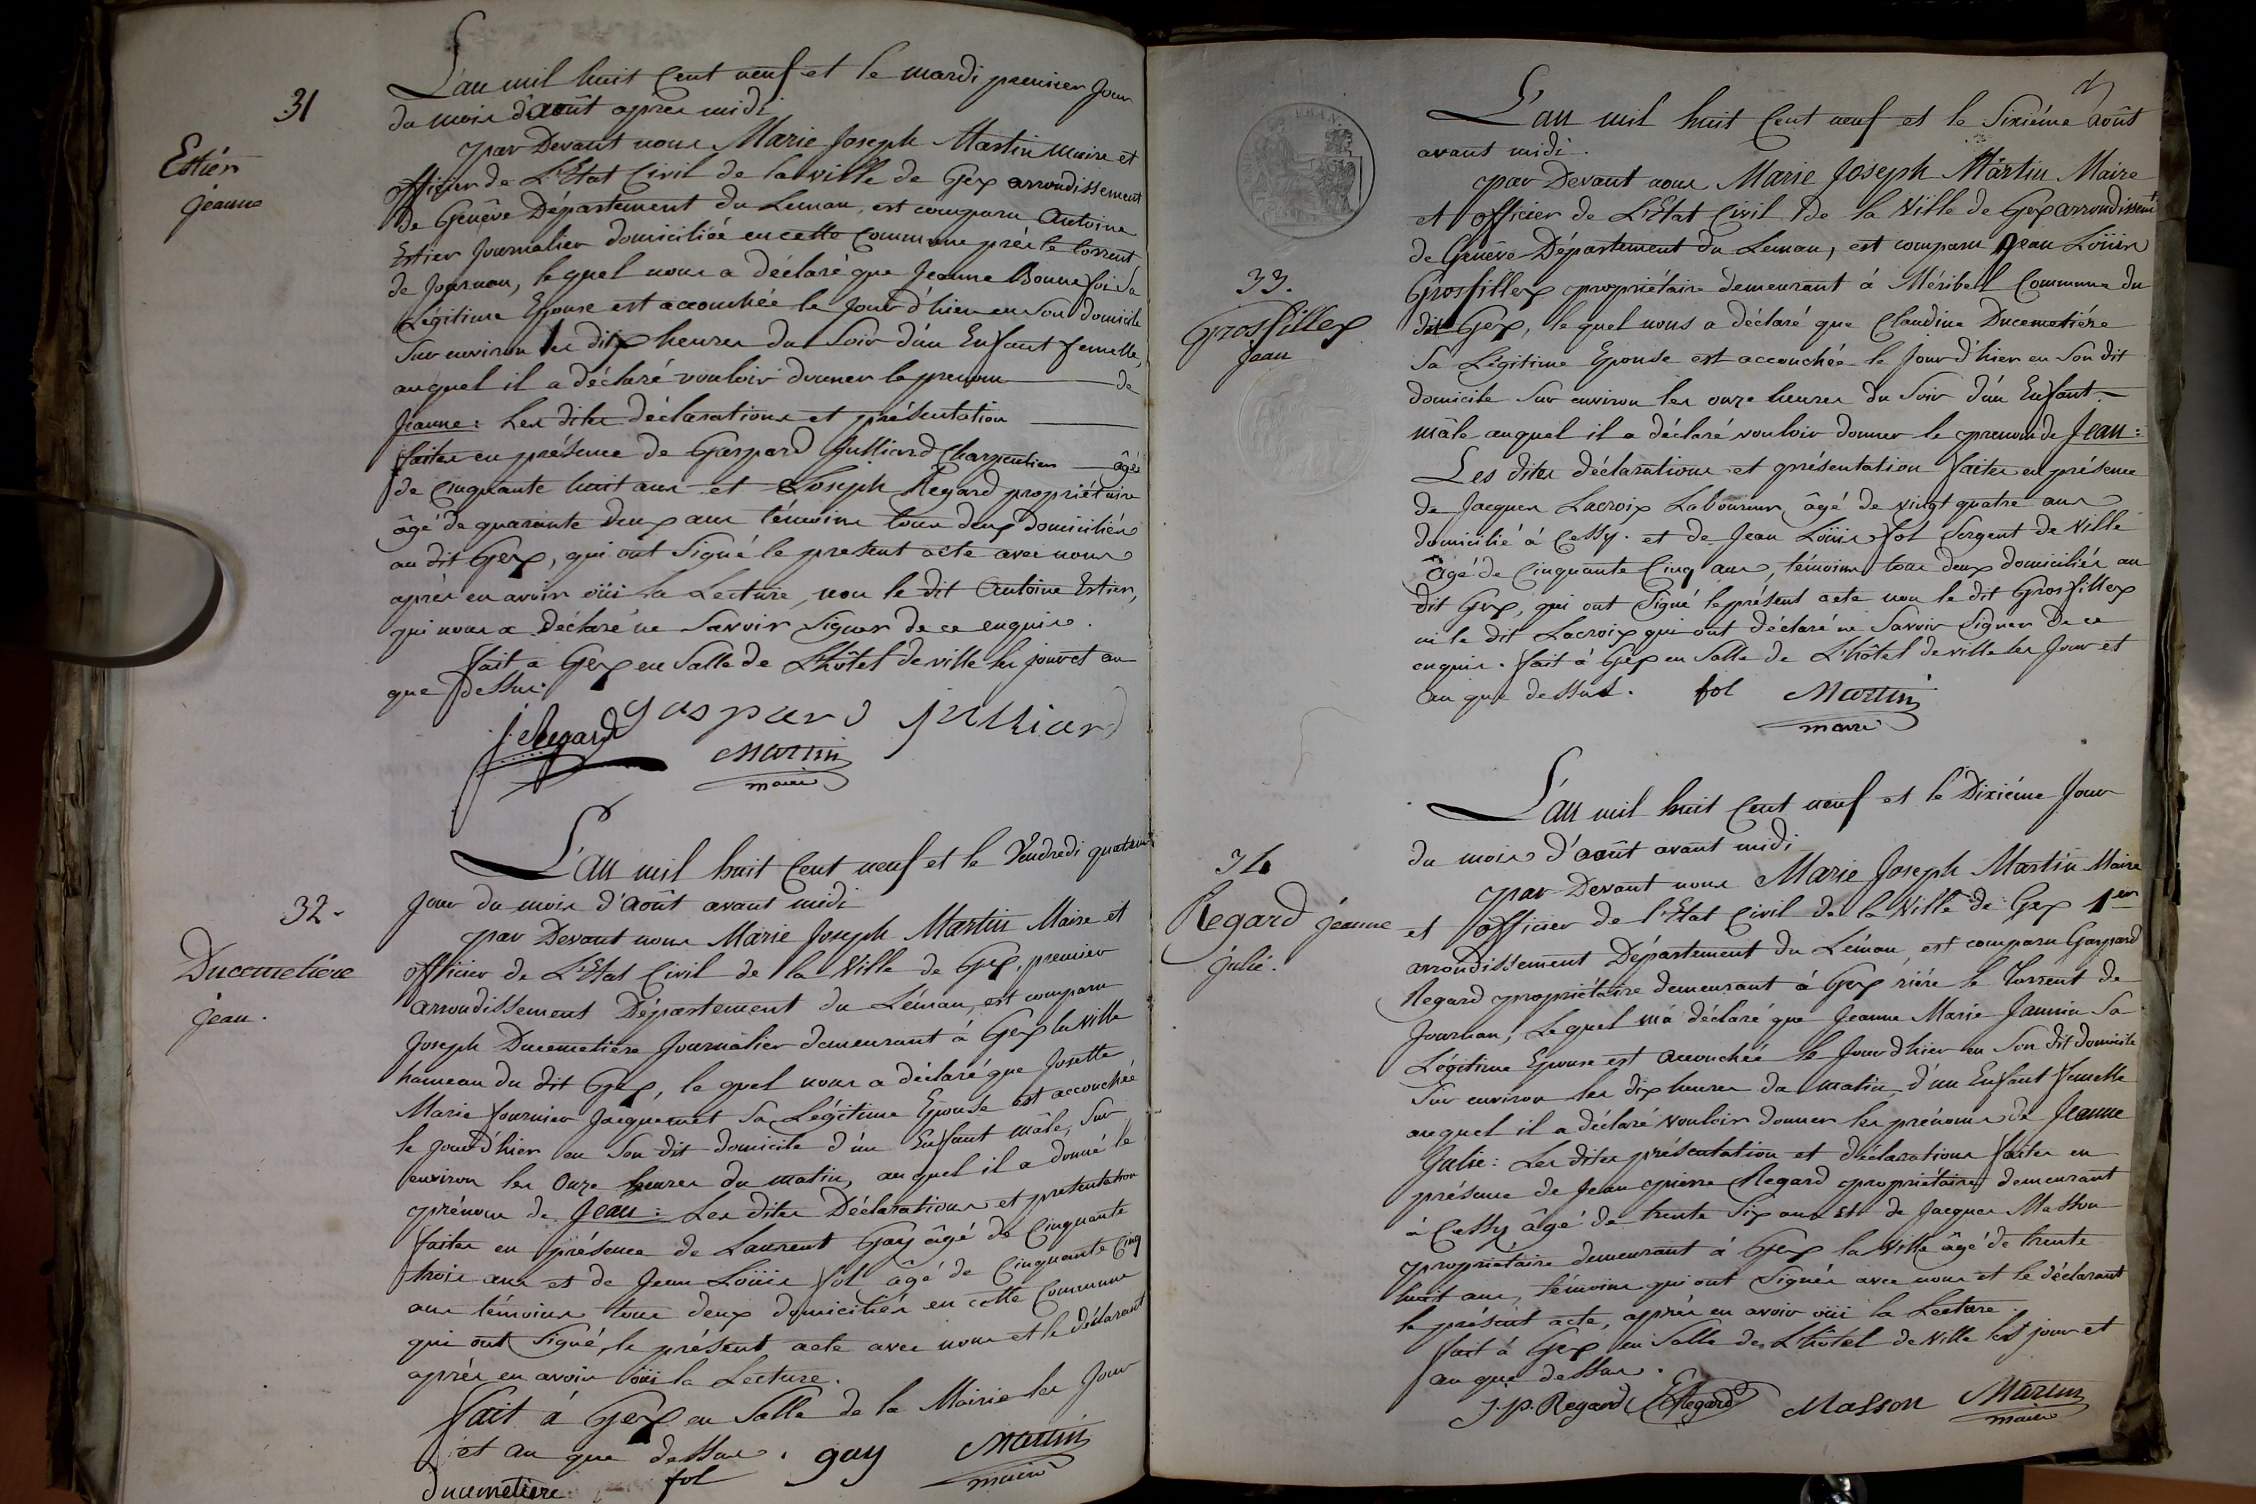 31
Estier
jeanne
L'an mil huit Cent neuf et le mardi premier Jour
du mois d'août après midi
par Devant nous Marie Joseph Martin Maire et
officier de L'Etat Civil de la ville de Gex arrondissement
de Genêve Département du Leman, est comparu Antoine
Estier Journalier domiciliée en cette Commune près le torrent
de Journan, lequel nous a déclaré que Jeanne Bonnefoi Sa
Légitime Epouse est accouchée le Jour d'hier en Son domicile
Sur environ les dix heures du Soir d'un Enfant femelle,
auquel il a déclaré vouloir donner le prenom de
Jeanne: Les dites déclarations et présentation
faites en présence de Gaspard Julliard Charpentier âgé
de Cinquante huit ans et Joseph Regard propriétaire
âgé de quarante Deux ans témoins tous deux domiciliés
au dit Gex, qui ont Signé le present acte avec nous
après en avoir oüi la Lecture, non le dit Antoine Estier,
qui nous a Déclaré ne Savoir Signer de ce enquis.
fait à Gex en Salle de L'hôtel de ville les jour et an
que dessus.
gaspard julliard
j. Regard
Martin
maire
32.
Ducemetiere
jean.
L'an mil huit Cent neuf et le Vendredi quatrième
Jour du mois d'Août avant midi
par Devant nous Marie Joseph Martin Maire et
officier de L'Etat Civil de la Ville de Gex, premier
arrondissement Département du Léman, est comparu
Joseph Ducemetière Journalier demeurant à Gex la ville
hameau du dit Gex, le quel nous a déclaré que Josette
Marie fournier Jacquemet Sa Légitime Epouse est accouchée
le Jour d'hier en Son dit domicile d'un Enfant mâle, Sur
environ les Onze heures du matin, auquel il a donné le
prénom de Jean: Les dites Déclarations et presentation
faites en présence de Laurent Gay âgé de Cinquante
trois ans et de Jean Loüis fol âgé de Cinquante Cinq
ans témoins tous deux domiciliés en cette Commune
qui ont Signé, le présent acte avec nous et le déclarant
après en avoir oüi la Lecture.
fait à Gex en Salle de la Mairie les Jour
et an que dessus. gay Martin
maire
ducemetiere fol
L'an mil huit Cent neuf et le Sixième Août
avant midi.
33.
Grosfillex
jean
par Devant nous Marie Joseph Martin Maire
et officier de L'Etat Civil de la Ville de Gex arrondissemt
de Genêve Département du Leman, est comparu Jean Loüis
Grosfillex propriétaire demeurant à Méribel Commune du
dit Gex, lequel nous a déclaré que Claudine Ducemetiére
Sa Légitime Epouse est accouchée le Jour d'hier en Son dit
domicile Sur environ les onze heures du Soir d'un Enfant
mâle auquel il a déclaré vouloir donner le prenom de Jean:
Les dites déclarations et présentation faites en présence
de Jacques Lacroix Laboureur âgé de vingt quatre ans
domicilié à Cessy. et de Jean Loüis fol Sergent de Ville
âgé de Cinquante Cinq ans, témoins tous deux domiciliés au
dit Gex, qui ont Signé le présent acte non le dit Grosfillex
ni le dit Lacroix qui ont déclaré ne Savoir Signer De ce
enquis. fait à Gex en Salle de L'hôtel de ville les Jour et
an que dessus. fol Martin
maire
34
Regard jeanne
julie.
L'an mil huit Cent neuf et le Dixiéme Jour
du mois d'août avant midi
par Devant nous Marie Joseph Martin Maire
et officier de l'Etat Civil de la Ville de Gex 1er
arrondissement Département du Léman, est comparu Gaspard
Regard propriétaire demeurant à Gex riére le Torrent de
Journan, Lequel m'a déclaré que Jeanne Marie Jannin Sa
Légitime Epouse est accouchée le Jour d'hier en Son dit domicile
Sur environ les dix heures du matin, d'un Enfant femelle
auquel il a déclaré vouloir donner les prénoms de Jeanne
Julie: Les dites présentation et déclarations faites en
présence de Jean pierre Regard propriétaire demeurant
à Cessy âgé de trente Six ans et de Jacques Masson
propriétaire demeurant à Gex la Ville âgé de trente
huit ans, témoins qui ont Signés avec nous et le déclarant
le présent acte, après en avoir oüi la Lecture.
fait à Gex en Salle de L'hôtel de Ville les jour et
an que dessus.
J. p. Regard Regard Masson Martin
maire